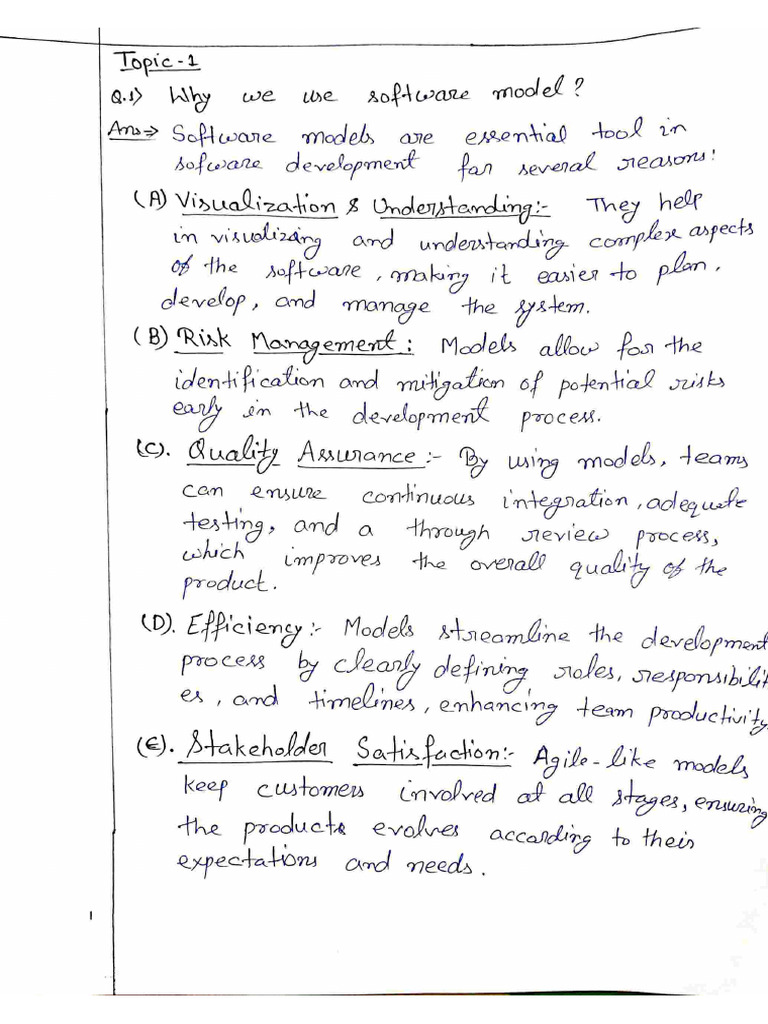 Topic-1
Q.1) Why we use software model?
Ans⇒ Software models are essential tool in
sofware development for several reasons:
(A) Visualization & Understanding:- They help
in visualizing and understanding complex aspects
of the software, making it easier to plan,
develop, and manage the system.
(B) Risk Management: Models allow for the
identification and mitigation of potential risks
early in the development process.
(C). Quality Assurance:- By using models, teams
can ensure continuous integration, adequate
testing, and a through review process,
which improves the overall quality of the
product.
(D). Efficiency:- Models streamline the development
process by clearly defining roles, responsibiliti
es, and timelines, enhancing team productivity.
(E). Stakeholder Satisfaction:- Agile-like models
keep customers involved at all stages, ensuring
the products evolves according to their
expectations and needs.
1